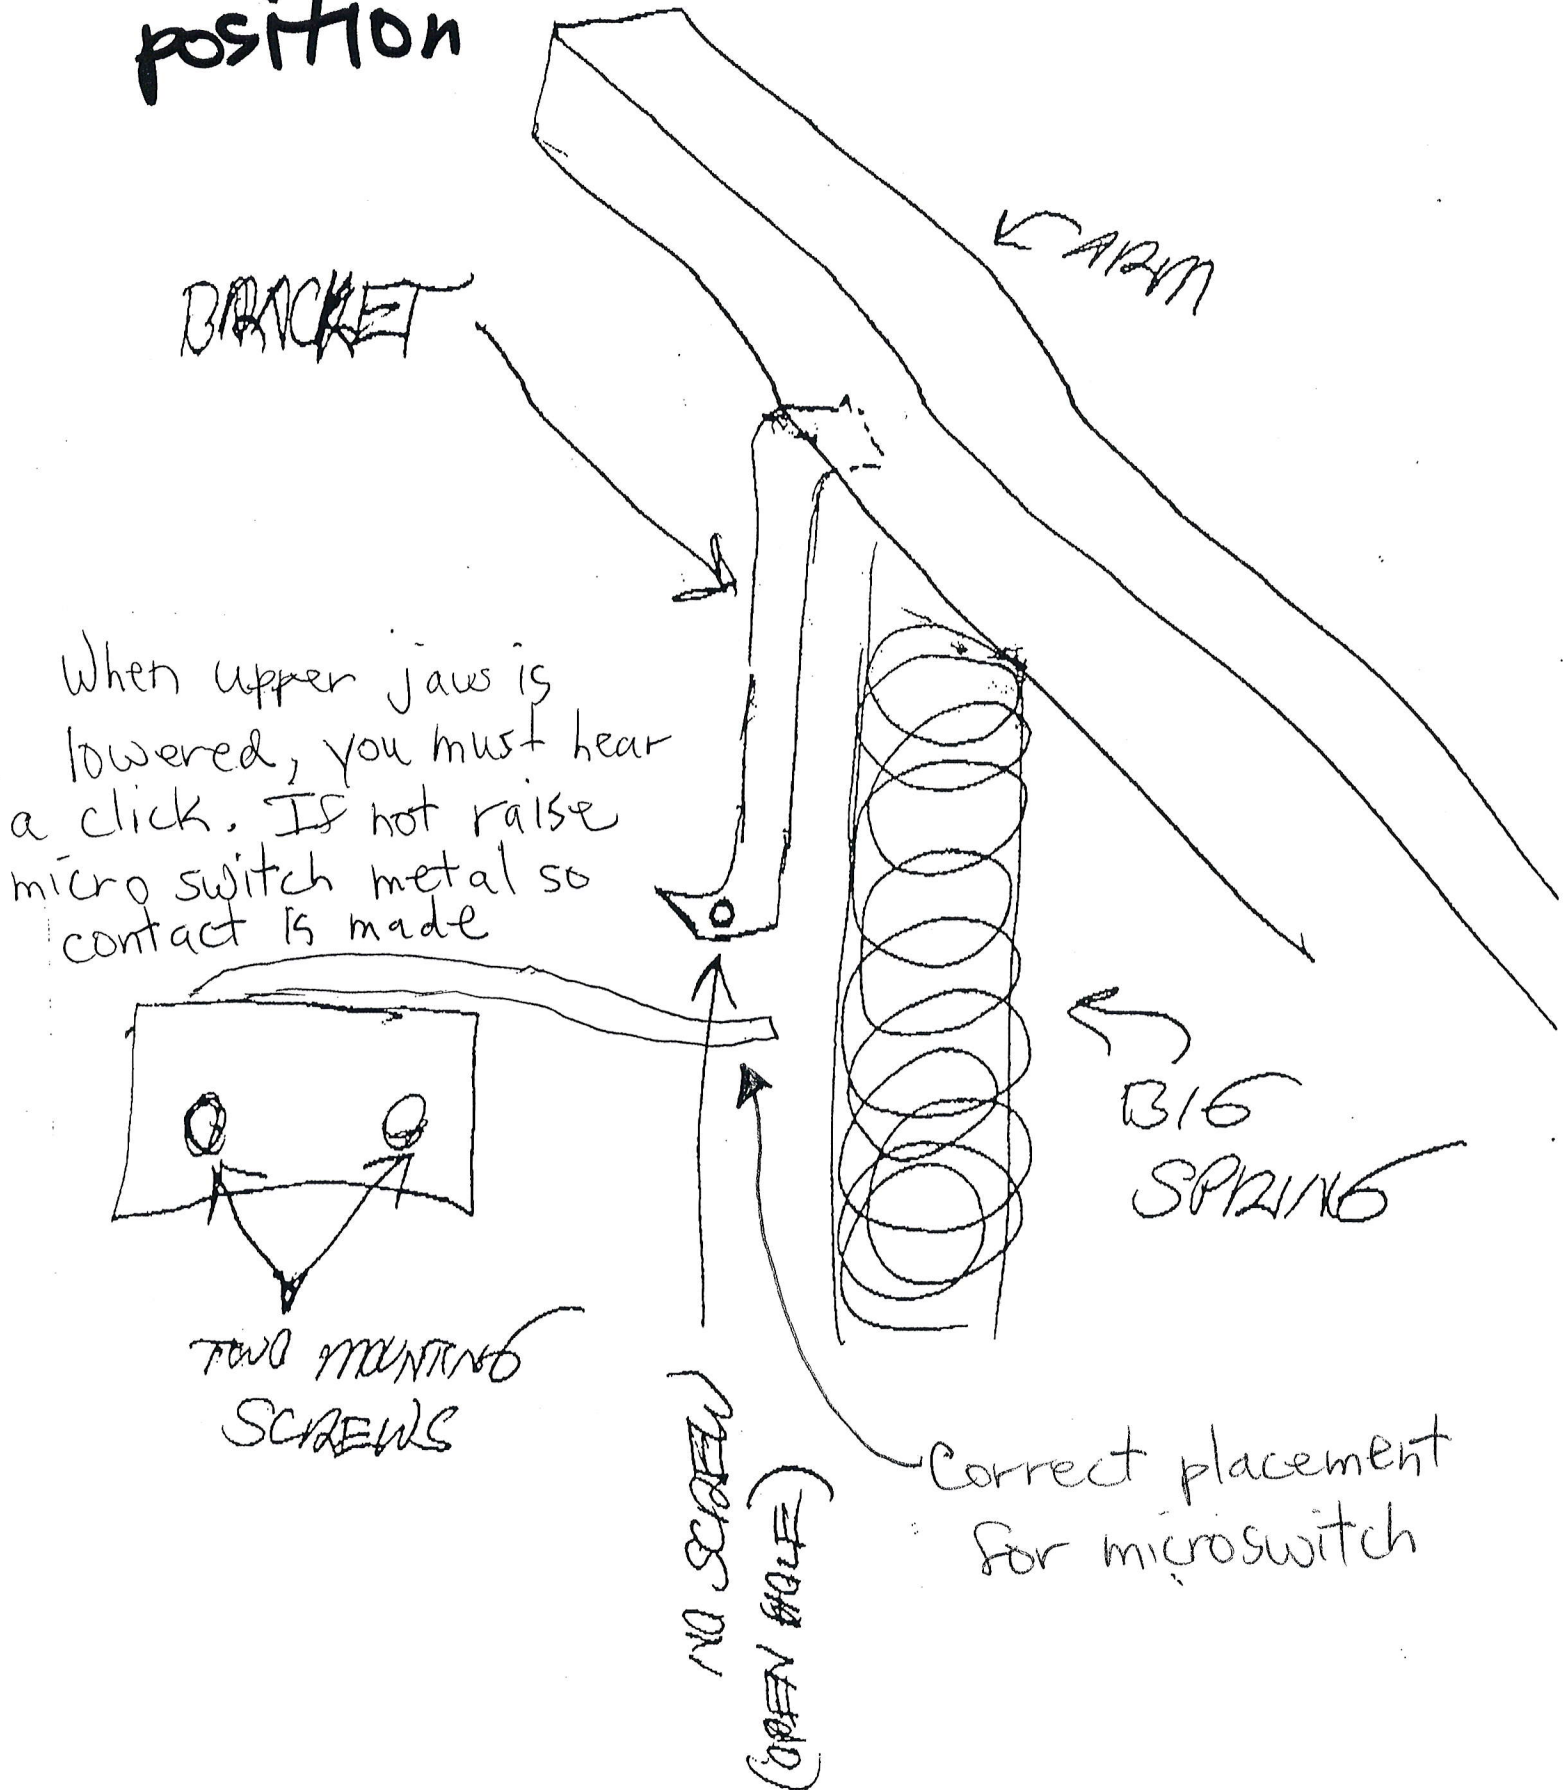 position
ARM
BRACKET
When upper jaw is
lowered, you must hear
a click. If not raise
micro switch metal so
contact is made
BIG
SPRING
TWO MOUNTING
SCREWS
NO SCREW
(OPEN HOLE)
Correct placement
for microswitch